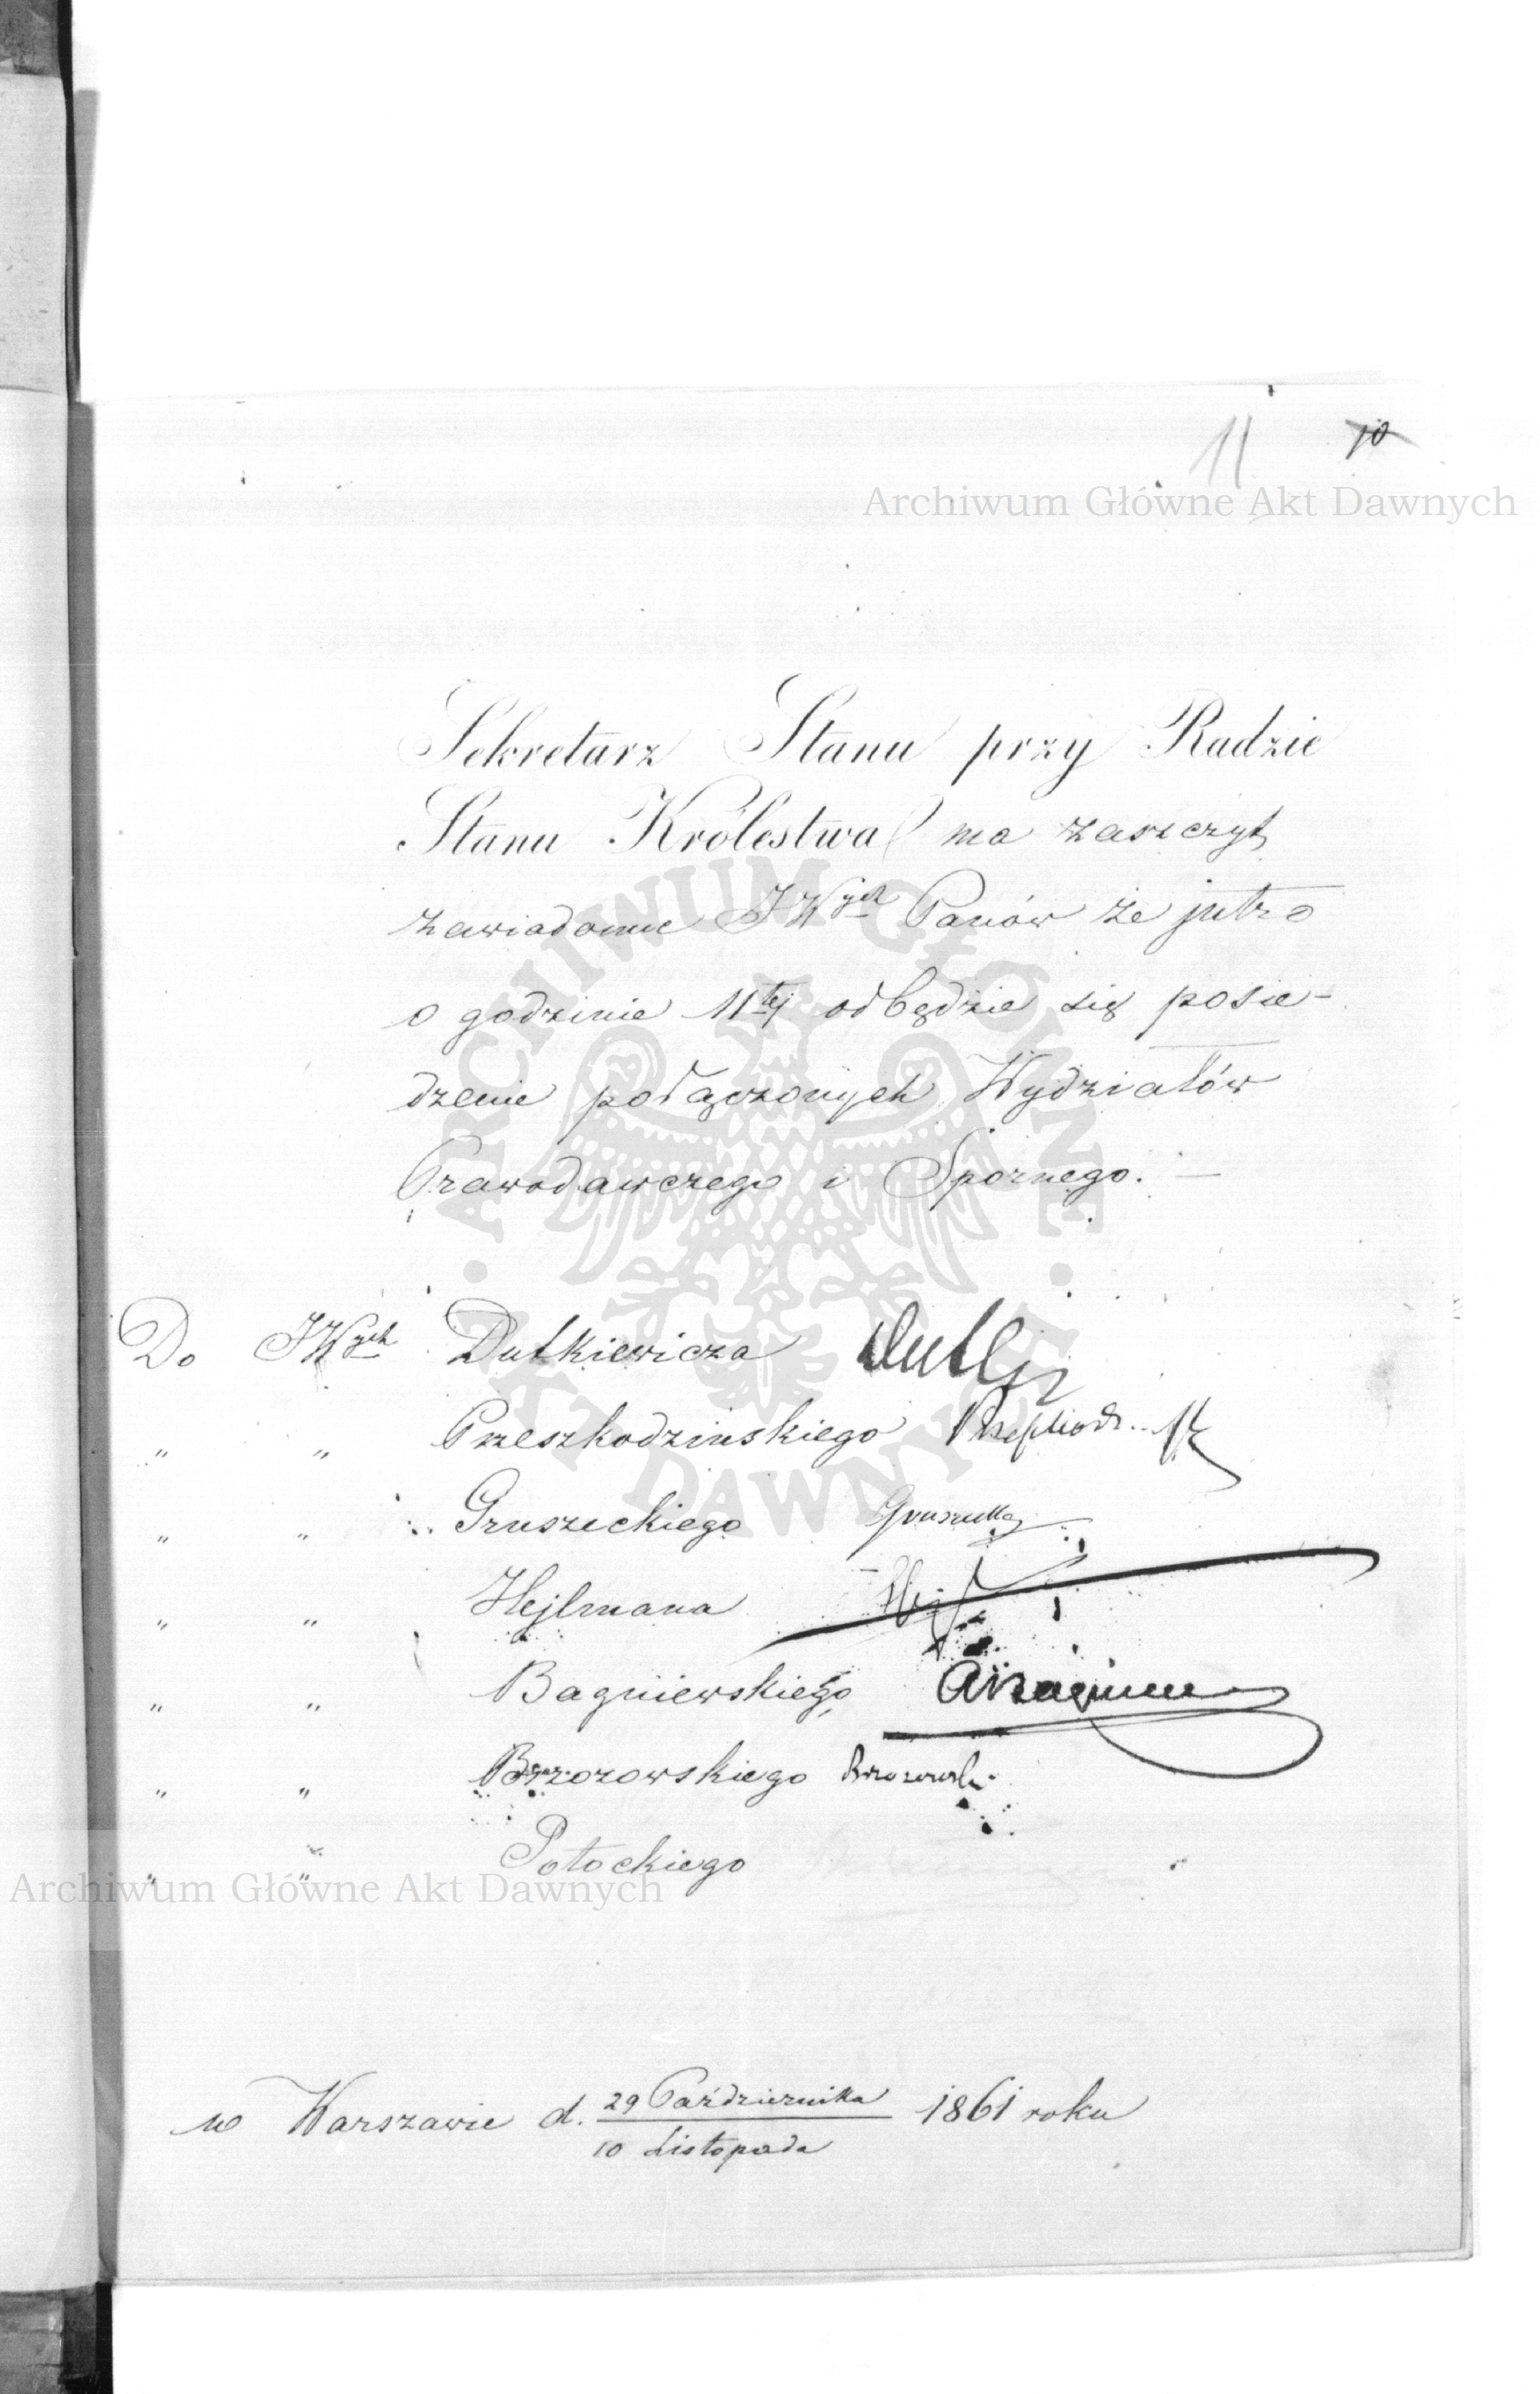 11 10
Archiwum Główne Akt Dawnych
Sekretarz Stanu przy Radzie
Stanu Królestwa ma zaszczyt
zawiadomić JWych Panów że jutro
o godzinie 11tej odbędzie się posie-
dzenie połączonych Wydziałów
Prawodawczego i Spornego. —
Do JWych Dutkiewicza
" " Przeszkodzińskiego
" " Gruszeckiego
" " Hejlmana
" " Bagniewskiego
" " Brzozowskiego Brzozowski
" " Potockiego
Archiwum Główne Akt Dawnych
w Warszawie d. 29 Października 1861 roku
10 Listopada
ARCHIWUM GŁÓWNE AKT DAWNYCH